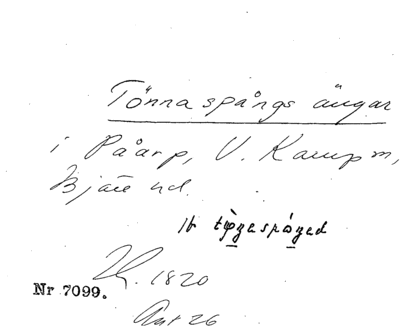 Tönnaspångs ängar
i Påarp, V. Karup sn,
Bjäre hd.
1820
Nr 7099.
Akt 26